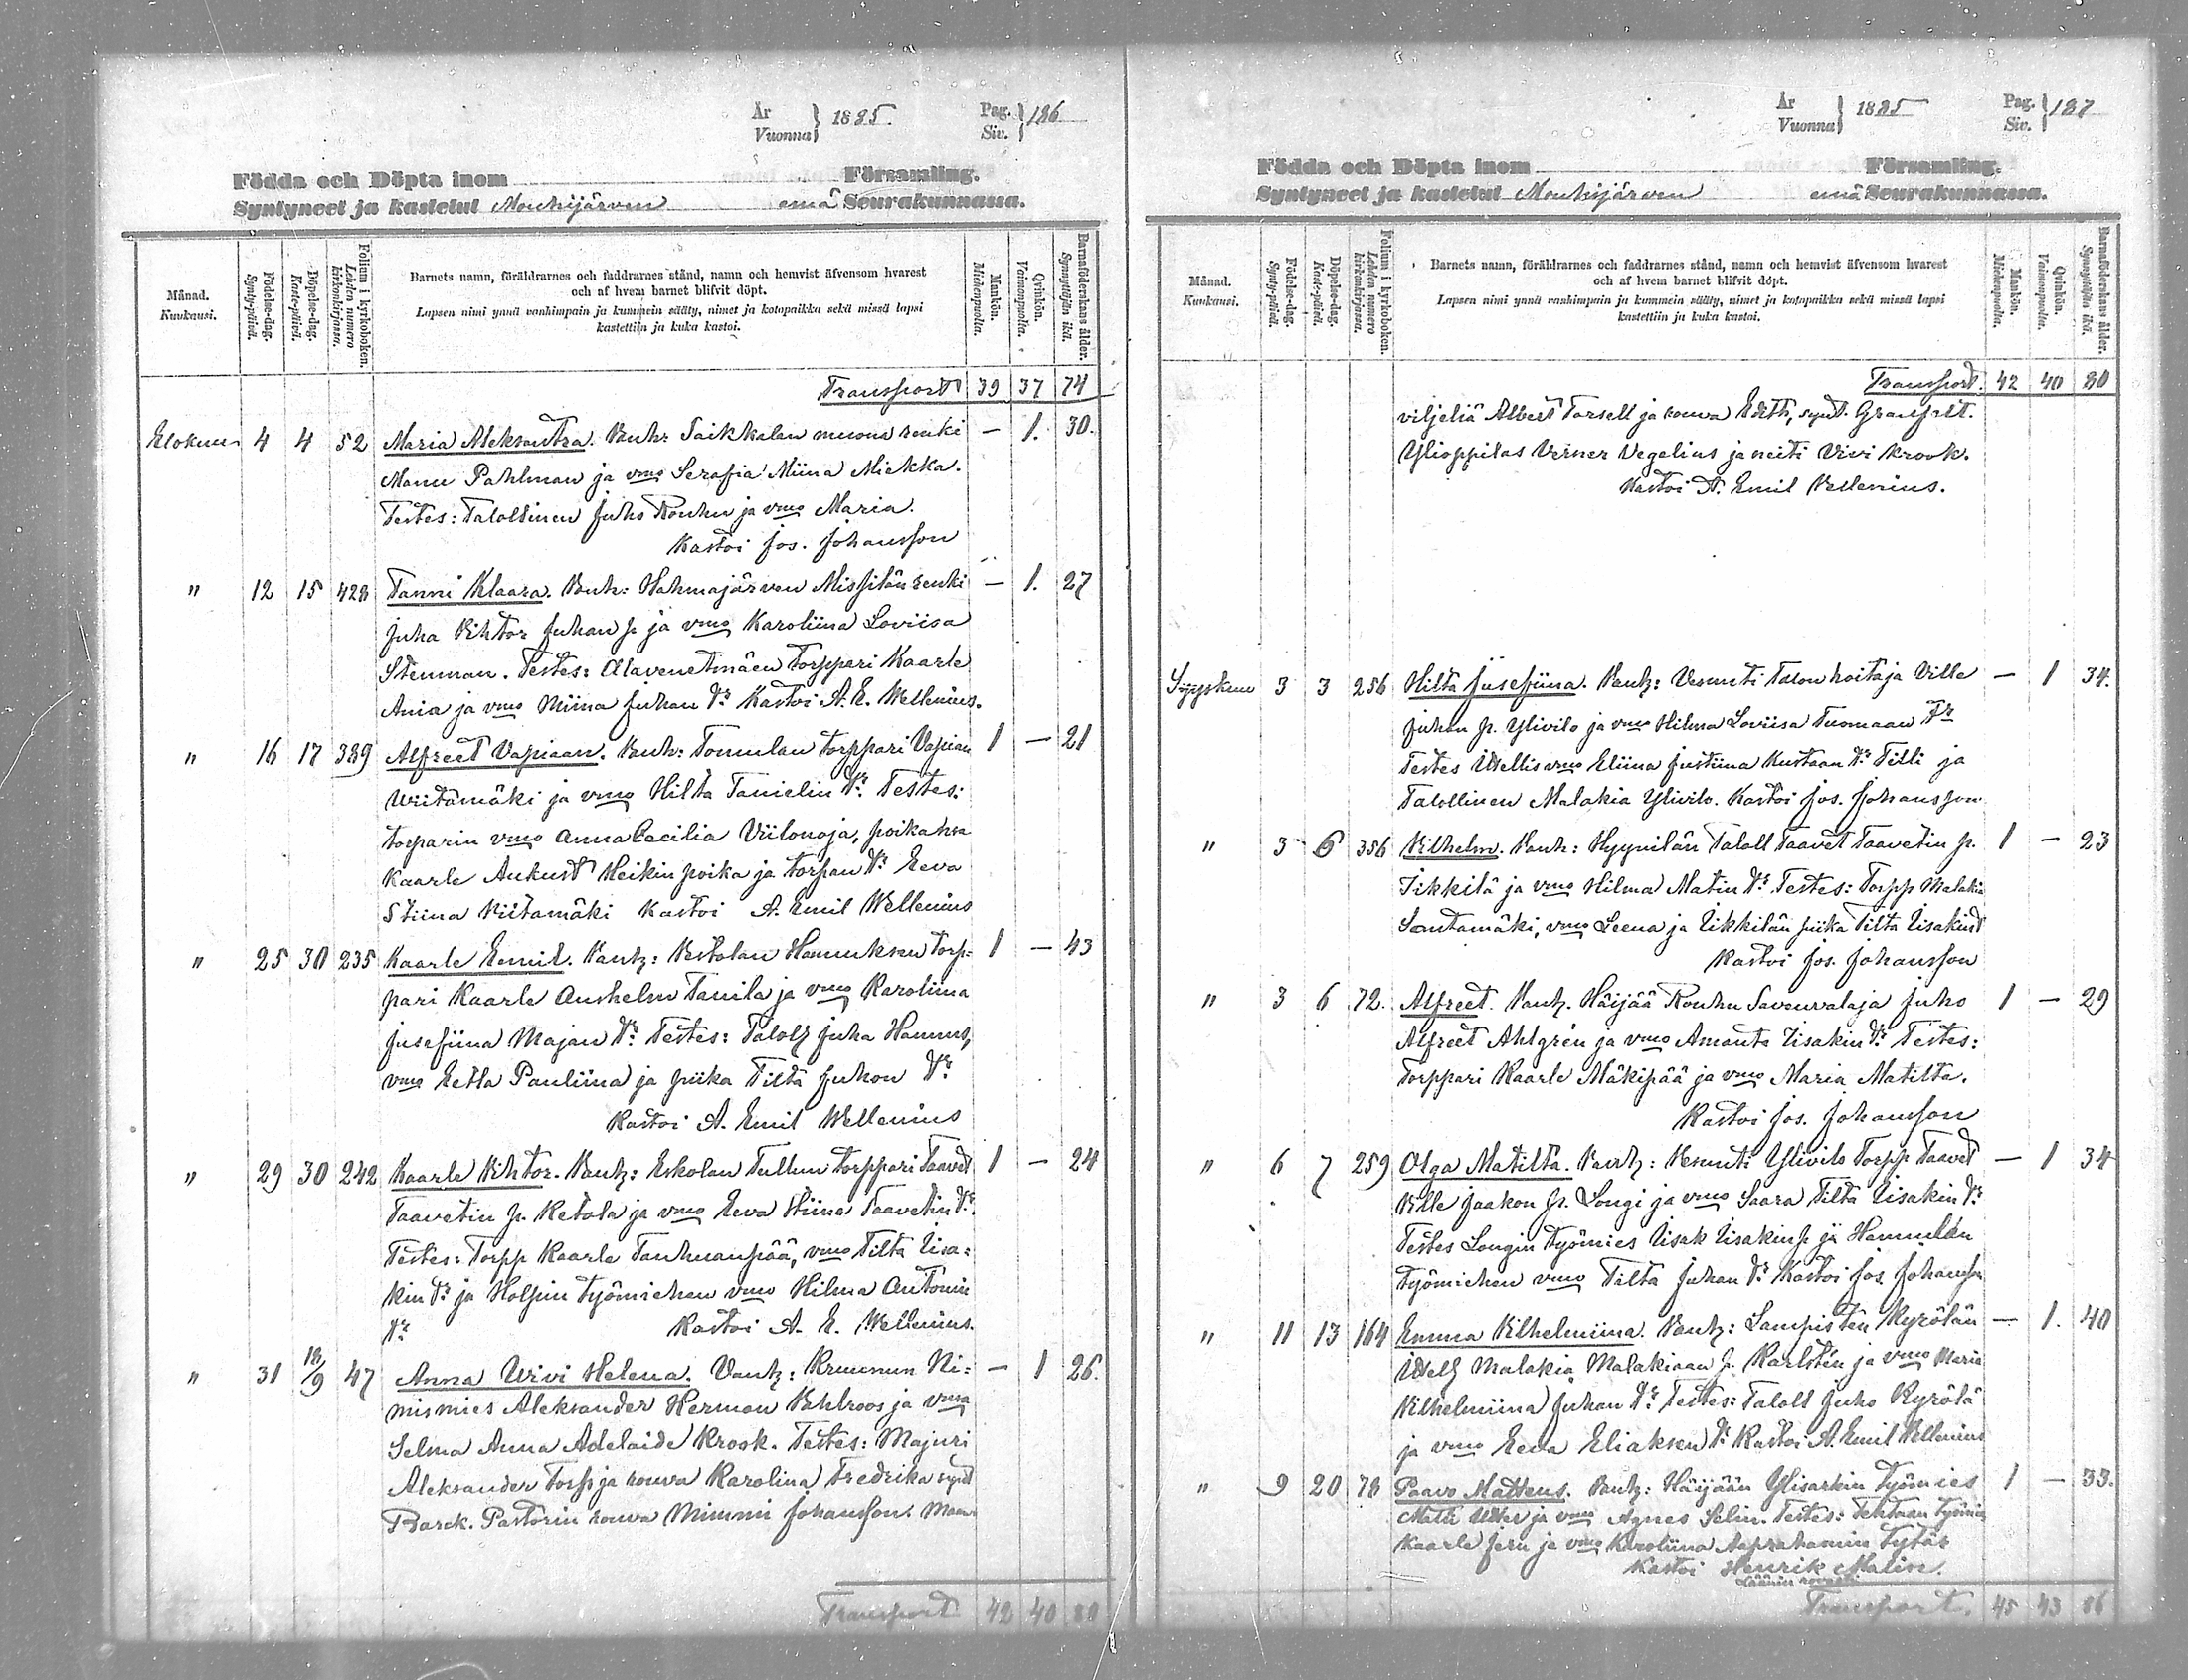 År
Vuonna } 1885. Pag.
Siv. } 186
Födda och Döpta inom Församling.
Syntyneet ja kastetut Mouhijärven emä Seurakunnassa.
Månad.
Kuukausi.
Födelse-dag.
Synty-päivä.
Döpelse-dag.
Kaste-päivä.
Folium i kyrkoboken.
Lehden numero
kirkonkirjassa.
Barnets namn, föräldrarnes och faddrarnes stånd, namn och hemvist äfvensom hvarest
och af hvem barnet blifvit döpt.
Lapsen nimi ynnä vanhimpain ja kummein sääty, nimet ja kotopaikka sekä missä lapsi
kastettiin ja kuka kastoi.
Mankön.
Miehenpuolta.
Qvinkön.
Vaimonpuolta.
Barnaföderskans ålder.
Synnyttäjän ikä.
Transport 39 37 74
Elokuu 4 4 52 Maria Aleksantra. Vanh: Saikkalan muona renki — 1. 30.
Manu Pahlman ja vmo Serafia Miina Miekka.
Testes: Talollinen Juho Rouhu ja vmo Maria.
Kastoi Jos. Johansson
" 12 15 428 Fanni Klaara. Vanh: Hahmajärven Missilän renki — 1. 27
Juha Vihtor Juhan p. ja vmo Karoliina Loviisa
Stenman. Testes: Alavenetmäen Torppari Kaarle
Ania ja vmo Miina Juhan tr. Kastoi A. E. Wellenius.
" 16 17 389 Alfreet Vapiaan. Vanh: Tomulan torppari Vapian 1 — 21
Wiitamäki ja vmo Hilta Tanielin tr. Testes:
torparin vmo Anna Cecilia Viilonoja, poika
Kaarle Aukust Heikin poika ja torpan tr. Eeva
Stiina Viitamäki Kastoi A. Emil Wellenius
" 25 30 235 Kaarle Eemil. Vanh: Vestolan Hannuksen torp-
pari Kaarle Anshelm Tanila ja vmo Karoliina 1 — 43
Jusefiina Majan tr. Testes: Taloll Juha Hannus,
vmo Eetla Pauliina ja piika Tilta Juhon tr.
Kastoi A. Emil Wellenius
" 29 30 242 Kaarle Vihtor. Vanh: Eskolan Tullun torppari Taavet 1 — 24
Taavetin p. Ketola ja vmo Eeva Stiina Taavetin tr.
Testes: Torpp Kaarle Tanhuanpää, vmo Tilta Iisa-
kin tr. ja Holpin työmiehen vmo Hilma Antonin
tr. Kastoi A. E. Wellenius.
" 31 18/9 47 Anna Wivi Helena. Vanh: Kruunun Ni- — 1 26.
mismies Aleksander Herman Vehlroos ja vmo
Selma Anna Adelaide Krook. Testes: Majuri
Aleksander Forss ja rouva Karolina Fredrika synt
Barck. Pastorin rouva Mimmi Johansson. Maan
Transport 42 40 80
År
Vuonna } 1885 Pag.
Siv. } 187
Födda och Döpta inom Församling.
Syntyneet ja kastetut Mouhijärven emä Seurakunnassa.
Månad.
Kuukausi.
Födelse-dag.
Synty-päivä.
Döpelse-dag.
Kaste-päivä.
Folium i kyrkoboken.
Lehden numero
kirkonkirjassa.
Barnets namn, föräldrarnes och faddrarnes stånd, namn och hemvist äfvensom hvarest
och af hvem barnet blifvit döpt.
Lapsen nimi ynnä vanhimpain ja kummein sääty, nimet ja kotopaikka sekä missä lapsi
kastettiin ja kuka kastoi.
Mankön.
Miehenpuolta.
Qvinkön.
Vaimonpuolta.
Barnaföderskans ålder.
Synnyttäjän ikä.
Transport. 42 40 80
viljeliä Albert Forsell ja rouva Edith, synt. Granfelt.
Ylioppilas Verner Vegelius ja neiti Vivi Krook.
Kastoi A. Emil Vellenius.
Syyskuu 3 3 256 Hilta Jusefiina. Vanh: Vesunti Talon hoitaja Ville — 1 34.
Juhan p. Ylivilo ja vmo Hilma Loviisa Tuomaan tr
Testes Itsellis vmo Eliina Justiina Kustaan tr. Tilli ja
Talollinen Malakia Ylivilo. Kastoi Jos. Johansson
" 3 6 356 Vilhelm. Vanh: Hyynilän Taloll Taavet Taavetin p. 1 — 23
Iikkilä ja vmo Hilma Matin tr. Testes: Torpp Malakia
Santamäki, vmo Leena ja Iikkilän piika Tilta Iisakint
Kastoi Jos. Johansson
" 3 6 72. Alfreet. Vanh. Häijää Rouhu Savenvalaja Juho 1 — 29
Alfreet Ahlgrén ja vmo Amanta Iisakin tr. Testes:
Torppari Kaarle Mäkipää ja vmo Maria Matilta.
Kastoi Jos. Johansson
" 6 7 259 Olga Matilta. Vanh: Vesunti Ylivilo Torpp Taavet — 1 34
Ville Jaakon p. Longi ja vmo Saara Tilta Iisakin tr.
Testes Longin Työmies Iisak Iisakin p ja Hannulan
työmiehen vmo Tilta Juhan tr. Kastoi Jos. Johansson
" 11 13 164 Emma Vilhelmiina. Vanh: Lampisten Kyrölän — 1. 40
Itsell Malakia Malakiaan p. Karlstén ja vmo Maria
Vilhelmiina Juhan tr. Testes: Taloll Juho Kyrölä
ja vmo Eeva Eliaksen tr. Kastoi A. Emil Vellenius
" 9 20 78 Paavo Mattеus. Vanh: Häijään Ylisarkin Työmies 1 — 33.
Matti ja vmo Agnes Selin. Testes: Tehtaan työmies
Kaarle ja vmo Karoliina Aaprahamin tytär
Kastoi Henrik Malin.
Läänin rovasti
Transport. 45 43 86